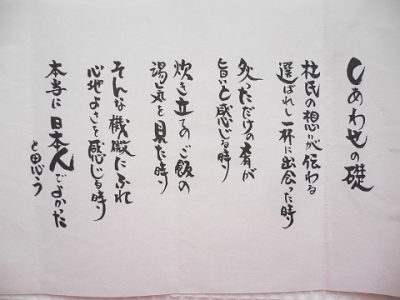 しあわせの礎
杜氏の想いが伝わる
選ばれし一杯に出会った時
炙っただけの肴が
旨いと感じる時
炊き立てのご飯の
湯気を見た時
そんな機微にふれ
心地よさを感じる時
本当に日本人でよかった
と思う